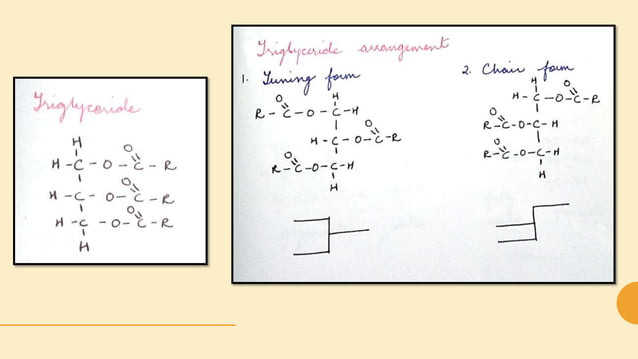 Triglyceride
H
H - C - O - C - R
O
H - C - O - C - R
O
H - C - O - C - R
O
H
Triglyceride arrangement
1. Tuning form
H
O
R - C - O - C - H
O
H - C - O - C - R
O
R - C - O - C - H
H
2. Chair form
H
O
H - C - O - C - R
O
R - C - O - C - H
O
R - C - O - C - H
H